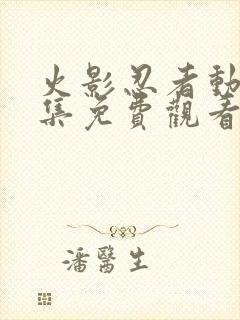 火影忍者動
集免費觀看
潘醫生